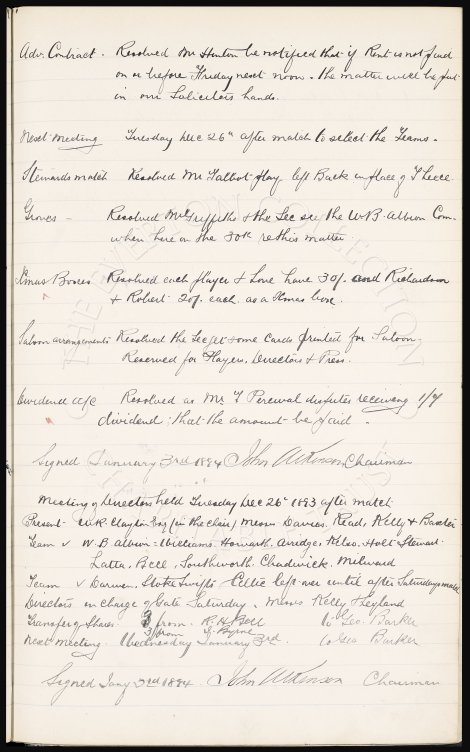 Adv. Contract. Resolved Mr Hinton be notified that if Rent is not paid
on or before Friday next noon, the matter will be put
in our Solicitors hands.
Next Meeting Tuesday Dec 26th after match to select the Teams.
Stewards match Resolved Mr Talbot play left Back in place of
Groves - Resolved Mr Griffiths & the Sec see the W B Albion Com
when here on the 30th re this matter
Xmas Boxes Resolved each player & Love have 30/. and Richardson
& Robert 20/. each as a Xmas box.
Saloon arrangements Resolved the Sec get some Cards printed for Saloon.
Reserved for Players, Directors & Press.
Dividend a/c Resolved as Mr T Percival disputes receiving 1/7
dividend, that the amount be paid.
Signed January 3rd 1894 John Atkinson Chairman
Meeting of Directors held Tuesday Dec 26th 1893 after match
Present W.R. Clayton Esq (in the Chair) Messrs Davies, Read, Kelly & Baxter
Team v W. B. Albion: Williams, Howarth, Arridge, Kelso, Holt, Stewart
Latta, Bell, Southworth, Chadwick, Milward
Team v Darwen, Stoke Swifts & Celtic left over until after Saturdays match
Directors in charge of Gate Saturday. Messrs Kelly & Leyland
Transfer of Shares 3 from R. H. Bell to Geo. Barker
3 from Byrne
Next Meeting Wednesday January 3rd. to Geo Barker
Signed Jany 3rd 1894 John Atkinson Chairman
THE EVERTON COLLECTION